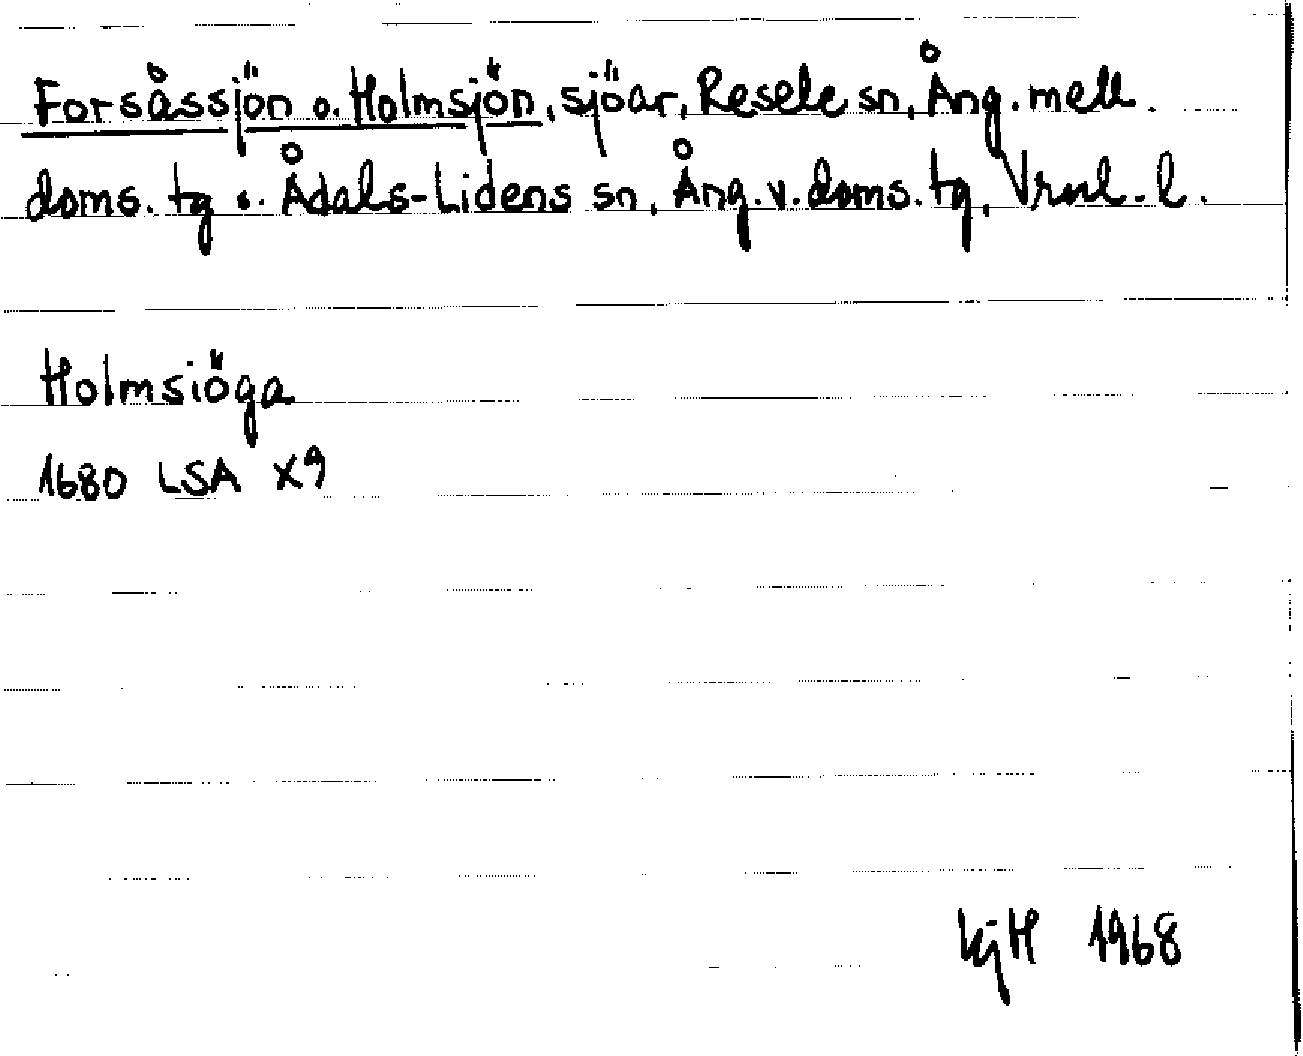 Forsåssjön o. Holmsjön, sjöar, Resele sn, Ång. mell.
doms. tg o. Ådals-Lidens sn, Ång. v. doms. tg, Vrnl. l.
Holmsiöga
1680 LSA X9
KjH 1968